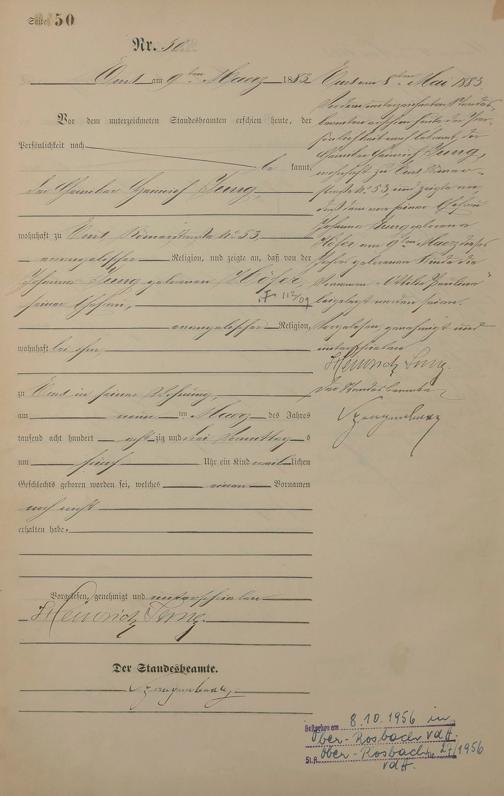 Seite 50
Nr. 50
am 9ten Maerz 1883
Vor dem unterzeichneten Standesbeamten erschien heute, der
Persönlichkeit nach
be kannt,
der Heinrich Jung,
wohnhaft zu Bismarckstraße No 53,
evangelischer Religion, und zeigte an, daß von der
Johanna Jung geborenen Höser,
seiner Ehefrau,
evangelischer Religion,
wohnhaft bei ihm,
zu in seiner Wohnung,
am neun ten Maerz des Jahres
tausend acht hundert acht zig und drei Vormittags
um fünf Uhr ein Kind weiblichen
Geschlechts geboren worden sei, welches einen Vornamen
noch nicht
erhalten habe.
Vorgelesen, genehmigt und unterschrieben
Heinrich Jung.
Der Standesbeamte.
am 8ten Mai 1883
Vor dem unterzeichneten Standes-
beamten erschien heute, der Per-
sönlichkeit nach bekannt,
der Heinrich Jung,
wohnhaft zu Bismarck-
straße No 53, und zeigte an,
daß dem von seiner Ehefrau
Johanna Jung geborenen
Höser am 9ten Maerz dieses
Jahres geborenen Kinde die
Vornamen Ottilie Pauline
beigelegt worden seien.
Vorgelesen, genehmigt und
unterschrieben
Heinrich Jung
Der Standesbeamte
Gestorben am 8.10.1956 in
Ober-Rosbach v d H.
St. A. Ober-Rosbach Nr. 27/1956
v d H.